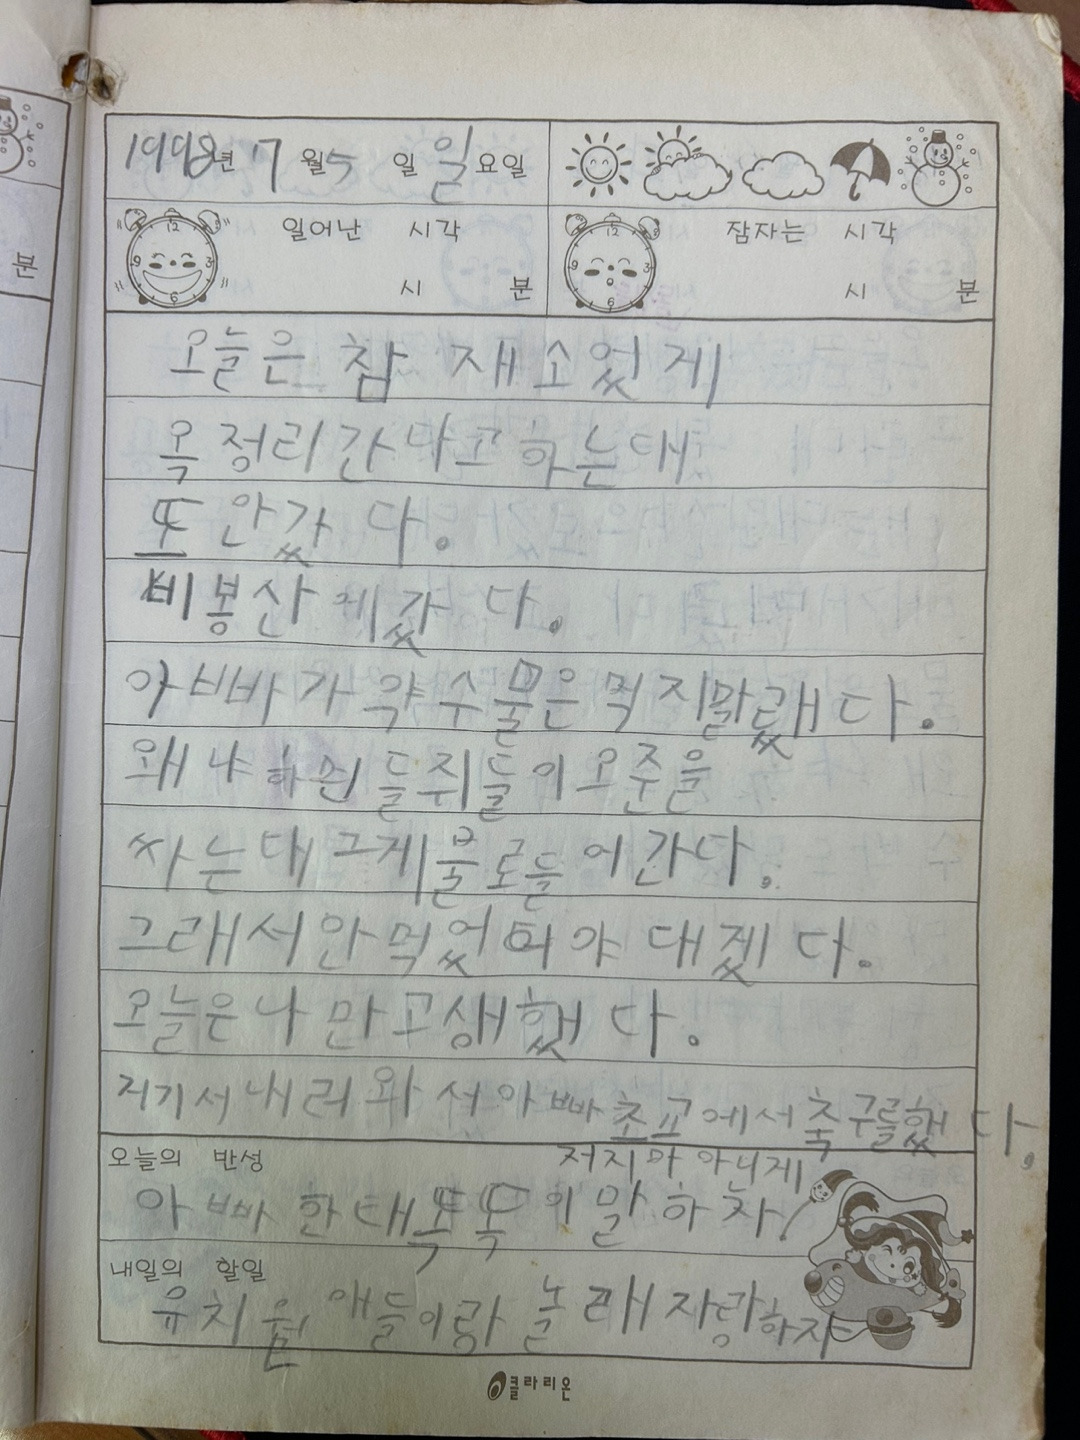 1998년 7월 5일 일요일
일어난 시각
시 분
잠자는 시각
시 분
분
오늘은 참 재소었게
옥정리간다고하는대
또 안갔다.
비봉산에갔다.
아빠가 약수물은 먹지말랬다.
왜냐하면 들쥐들이 오줌을
싸는대 그게 물로들어간다.
그래서 안먹었다 대겠다.
오늘은 나만고생했다.
저기서 내려와서 아빠 초교에서 축구를했다.
오늘의 반성
저지마 아니게
아빠한태 똑똑이 말하자
내일의 할일
유치원 애들이랑 놀래 자랑하자
클라리온